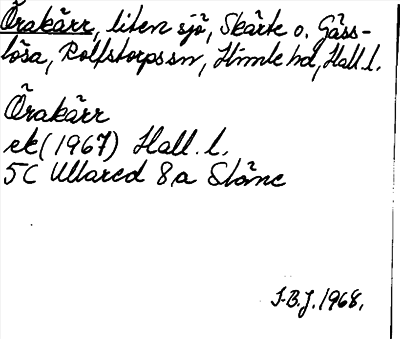 Örakärr, liten sjö, Skärte o. Gäss-
lösa, Rolfstorps sn, Himle hd, Hall. l.
Örakärr
ek (1967) Hall. l.
5C Ullared 8a Stöme
J.B.J. 1968.